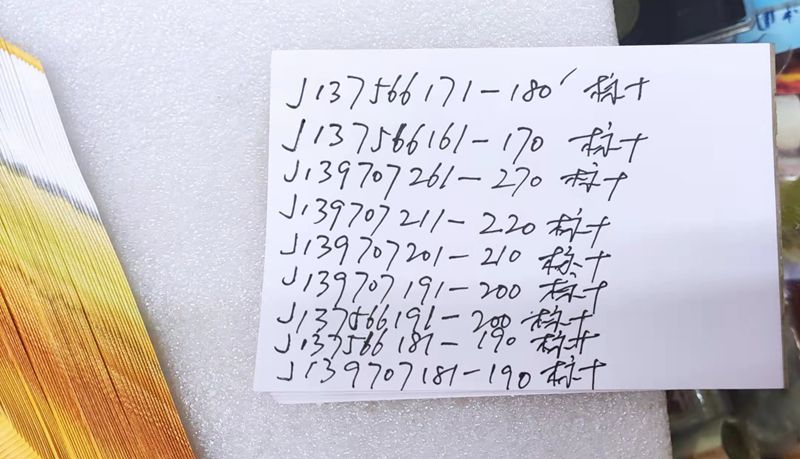 J137566171-180 标十
J137566161-170 标十
J139707261-270 标十
J139707211-220 标十
J139707201-210 标十
J139707191-200 标十
J137566191-200 标十
J137566181-190 标十
J139707181-190 标十